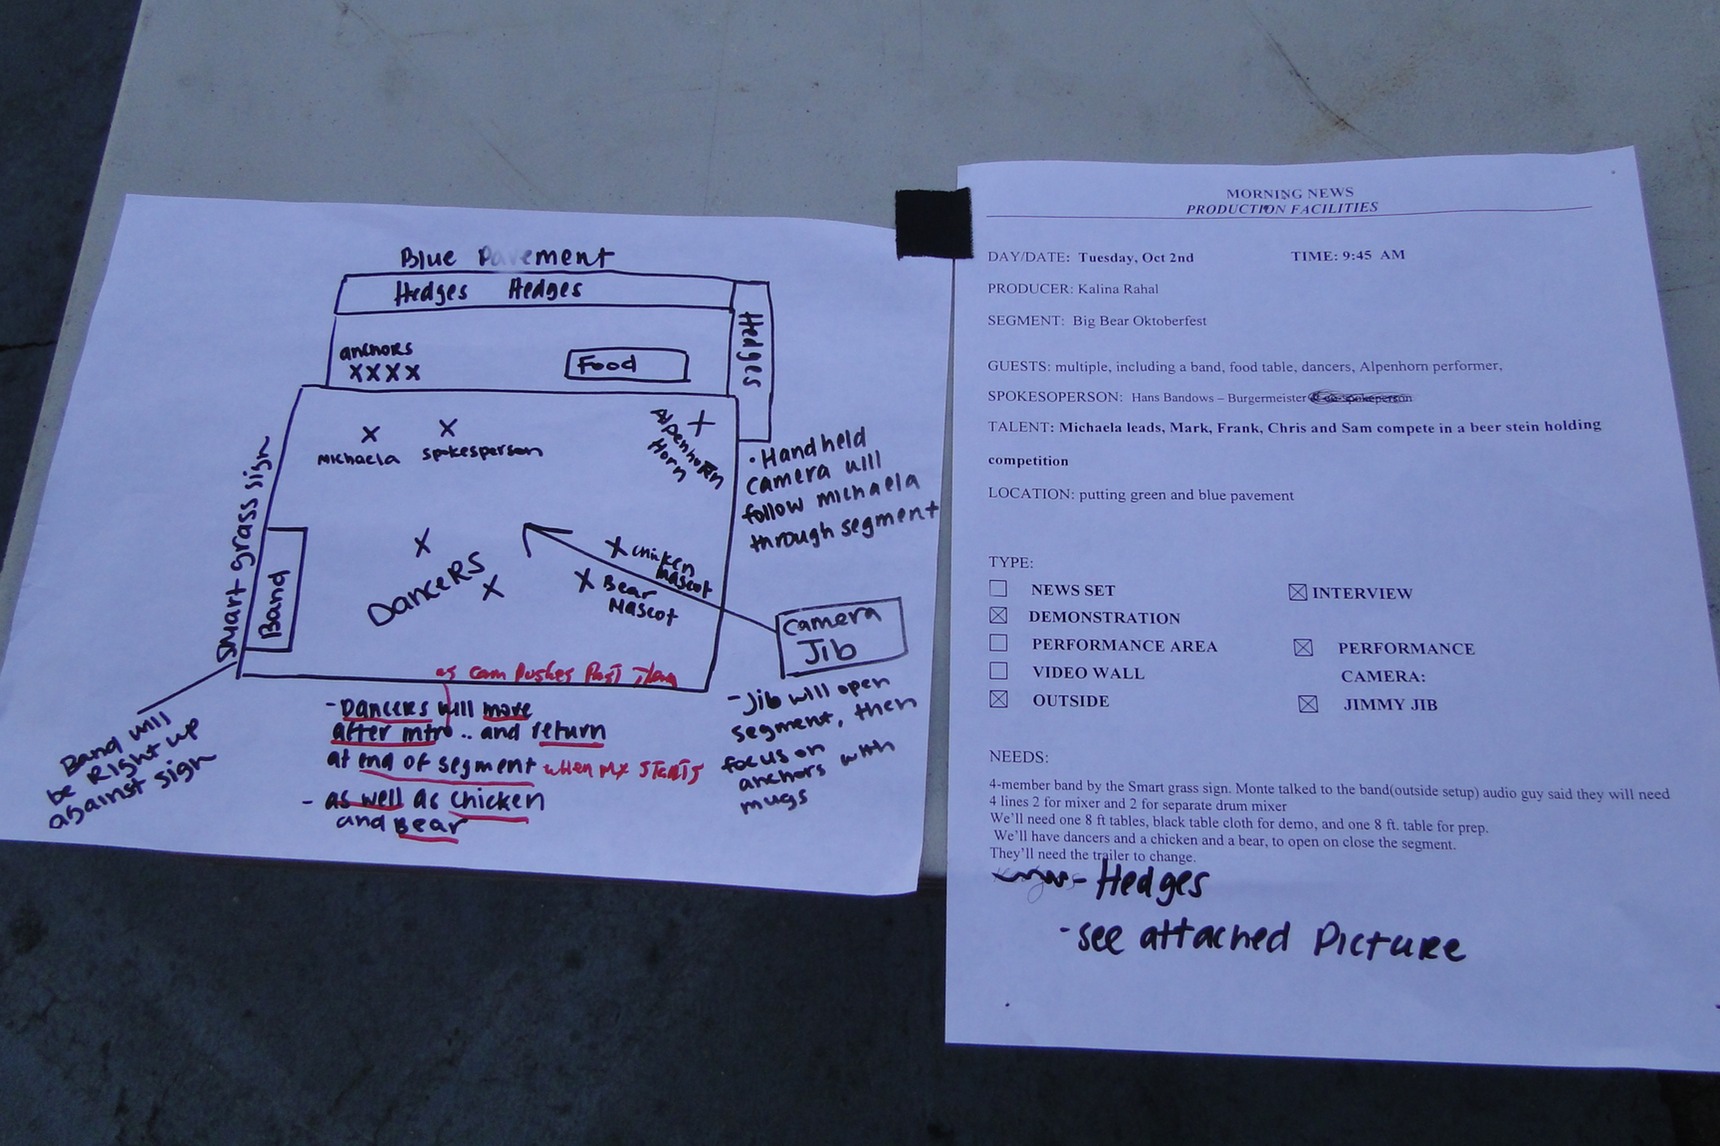 Blue Pavement
Hedges Hedges
Hedges
anchors
XXXX
Food
X
X
X
Michaela
spokesperson
Alpenhorn
Horn
Smart grass sign
Band
X
DANCERS
X
X chicken
Mascot
X Bear
Mascot
Camera
Jib
· Handheld
camera will
follow michaela
through segment
as cam pushes past them
- Dancers will move
after intro .. and return
at end of segment when mx starts
- as well as chicken
and Bear
Band will
be Right up
against sign
- Jib will open
segment, then
focus on
anchors with
mugs
MORNING NEWS
PRODUCTION FACILITIES
DAY/DATE: Tuesday, Oct 2nd TIME: 9:45 AM
PRODUCER: Kalina Rahal
SEGMENT: Big Bear Oktoberfest
GUESTS: multiple, including a band, food table, dancers, Alpenhorn performer,
SPOKESOPERSON: Hans Bandows – Burgermeister
TALENT: Michaela leads, Mark, Frank, Chris and Sam compete in a beer stein holding
competition
LOCATION: putting green and blue pavement
TYPE:
NEWS SET
INTERVIEW
DEMONSTRATION
PERFORMANCE AREA
PERFORMANCE
VIDEO WALL
CAMERA:
OUTSIDE
JIMMY JIB
NEEDS:
4-member band by the Smart grass sign. Monte talked to the band(outside setup) audio guy said they will need
4 lines 2 for mixer and 2 for separate drum mixer
We'll need one 8 ft tables, black table cloth for demo, and one 8 ft. table for prep.
We'll have dancers and a chicken and a bear, to open on close the segment.
They'll need the trailer to change.
- Hedges
- see attached Picture